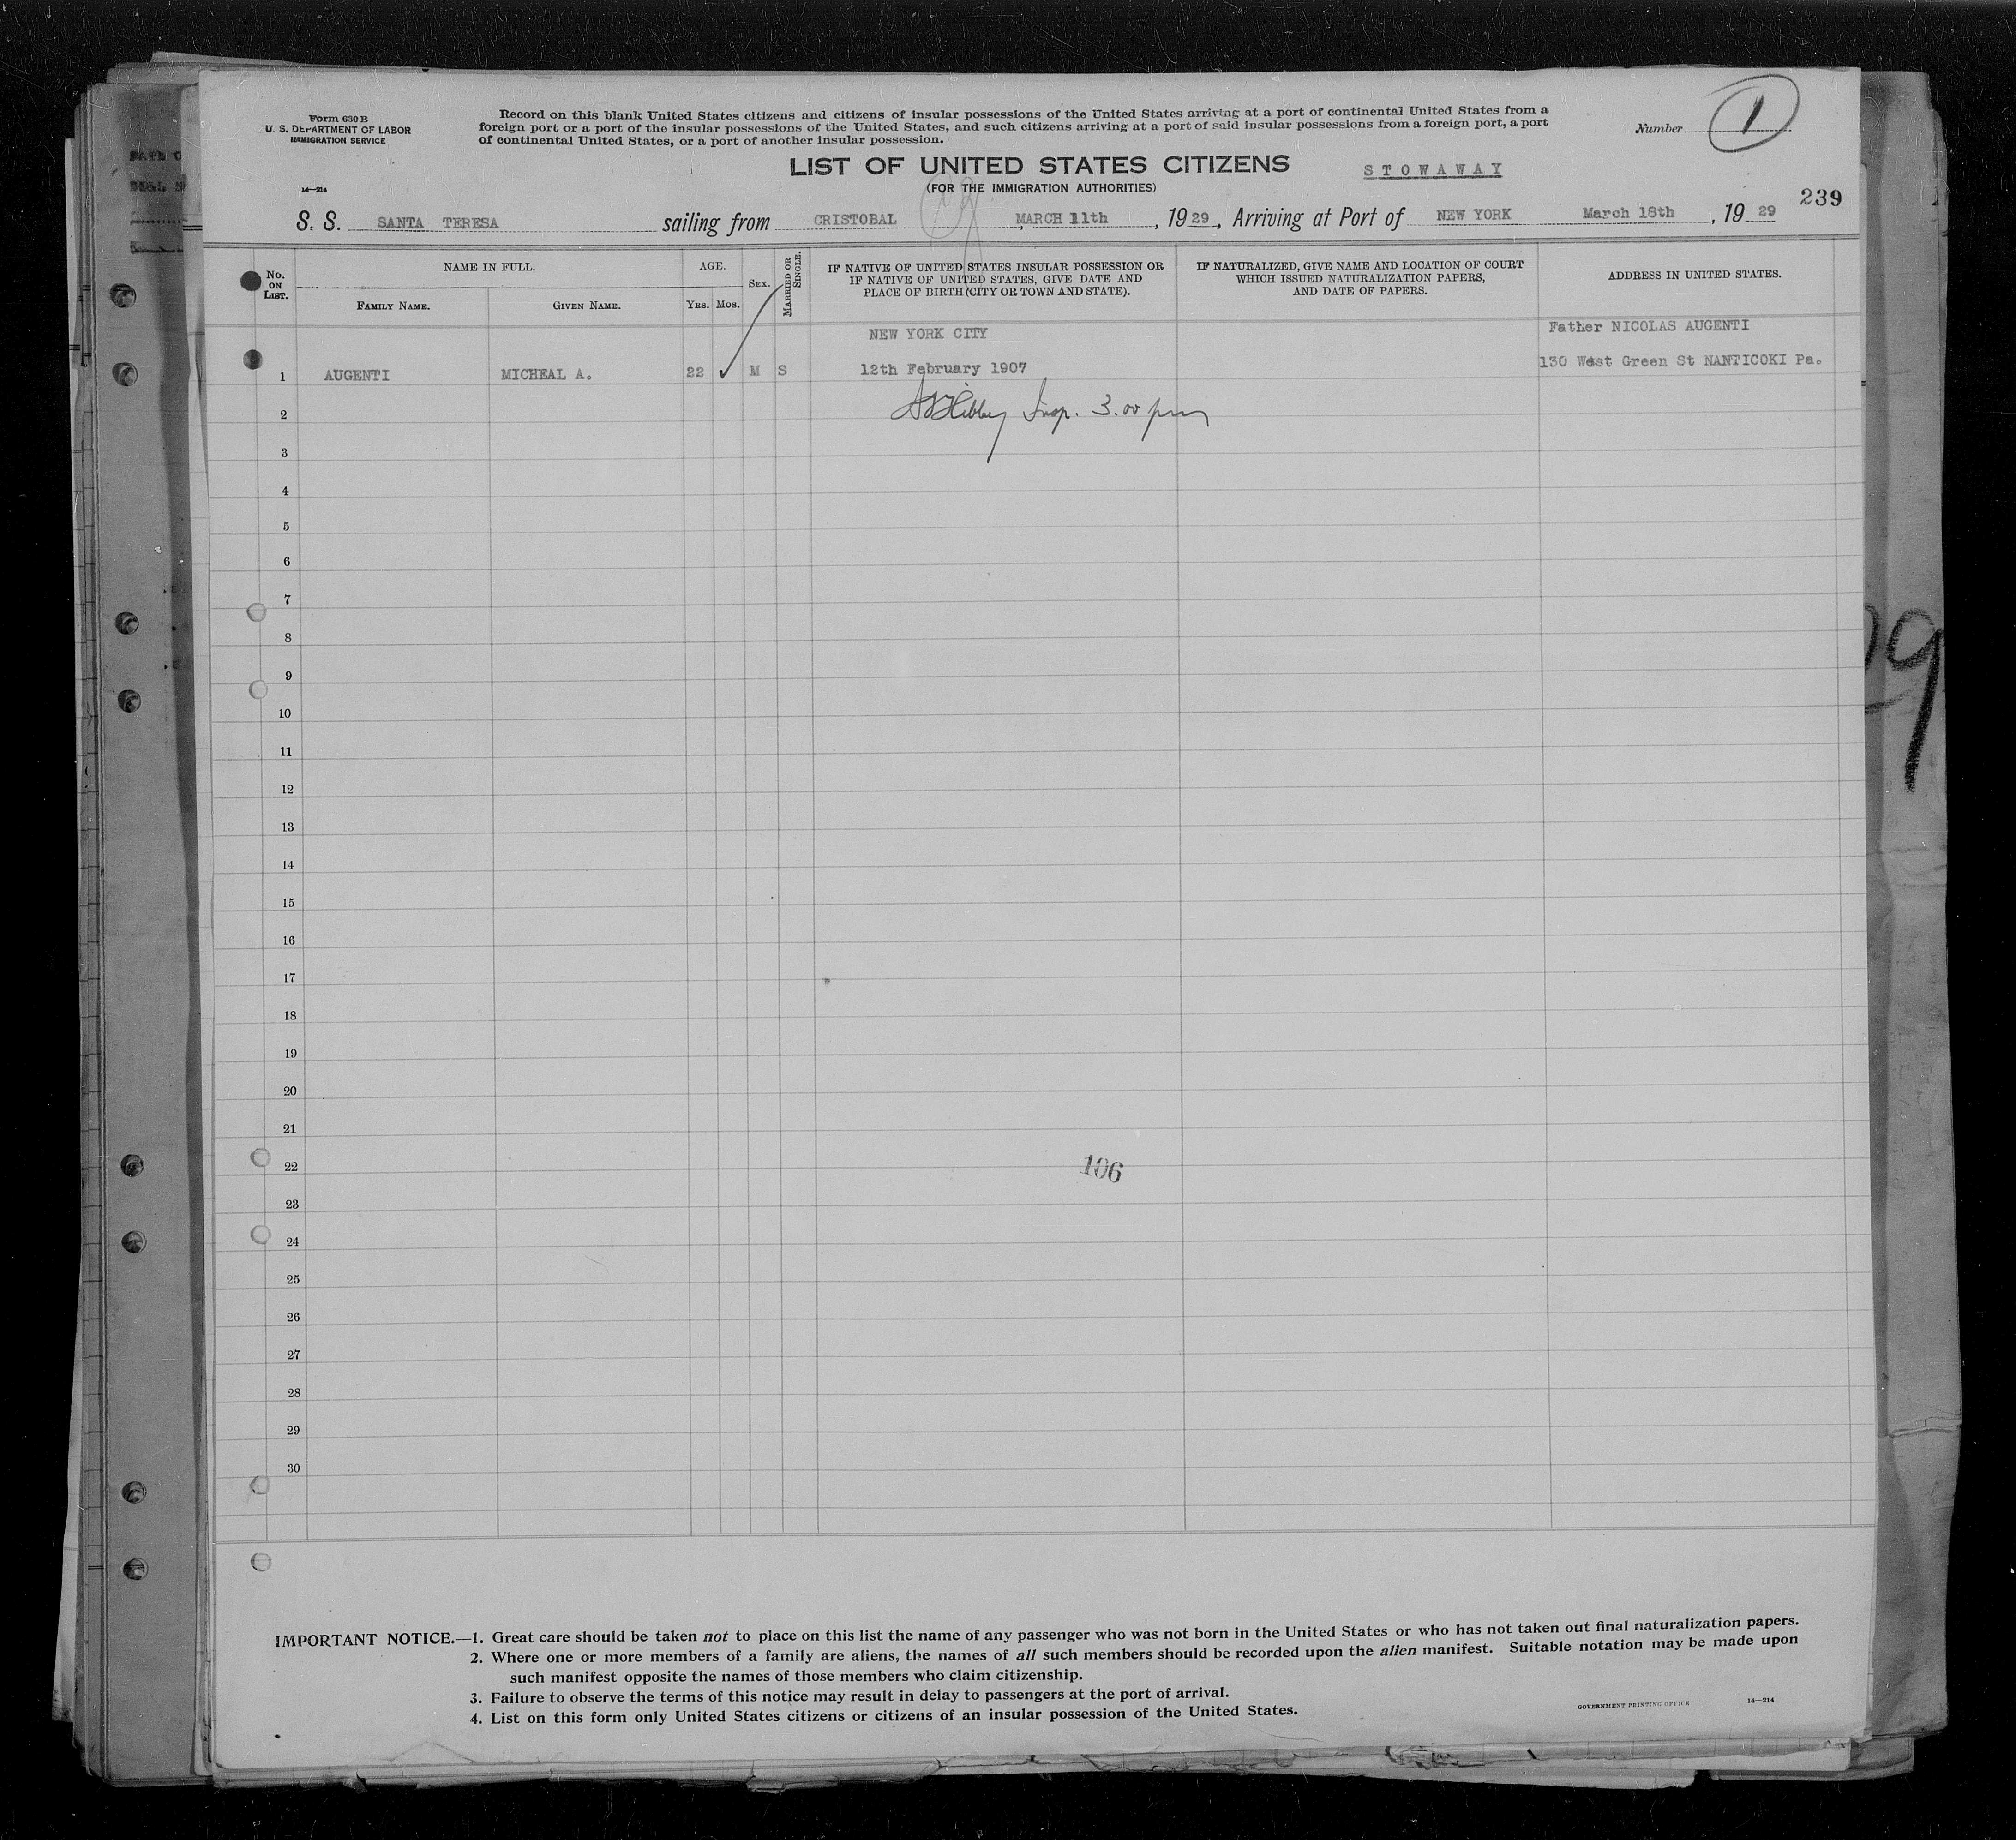 Form 630 B
U. S. DEPARTMENT OF LABOR
IMMIGRATION SERVICE
14—214
Record on this blank United States citizens and citizens of insular possessions of the United States arriving at a port of continental United States from a
foreign port or a port of the insular possessions of the United States, and such citizens arriving at a port of said insular possessions from a foreign port, a port
of continental United States, or a port of another insular possession.
Number 1
LIST OF UNITED STATES CITIZENS
STOWAWAY
(FOR THE IMMIGRATION AUTHORITIES)
239
S. S. SANTA TERESA sailing from CRISTOBAL, MARCH 11th, 1929, Arriving at Port of NEW YORK March 18th, 1929
No. ON LIST.
NAME IN FULL.
FAMILY NAME.
GIVEN NAME.
AGE.
YRS. MOS.
SEX.
MARRIED OR SINGLE.
IF NATIVE OF UNITED STATES INSULAR POSSESSION OR
IF NATIVE OF UNITED STATES, GIVE DATE AND
PLACE OF BIRTH (CITY OR TOWN AND STATE).
IF NATURALIZED, GIVE NAME AND LOCATION OF COURT
WHICH ISSUED NATURALIZATION PAPERS,
AND DATE OF PAPERS.
ADDRESS IN UNITED STATES.
NEW YORK CITY
Father NICOLAS AUGENTI
1 AUGENTI MICHEAL A. 22 ✓ M S 12th February 1907 130 West Green St NANTICOKI Pa.
2 Insp. 3.00 pm
3
4
5
6
7
8
9
10
11
12
13
14
15
16
17
18
19
20
21
22 106
23
24
25
26
27
28
29
30
IMPORTANT NOTICE.—1. Great care should be taken not to place on this list the name of any passenger who was not born in the United States or who has not taken out final naturalization papers.
2. Where one or more members of a family are aliens, the names of all such members should be recorded upon the alien manifest. Suitable notation may be made upon
such manifest opposite the names of those members who claim citizenship.
3. Failure to observe the terms of this notice may result in delay to passengers at the port of arrival.
4. List on this form only United States citizens or citizens of an insular possession of the United States.
GOVERNMENT PRINTING OFFICE 14—214